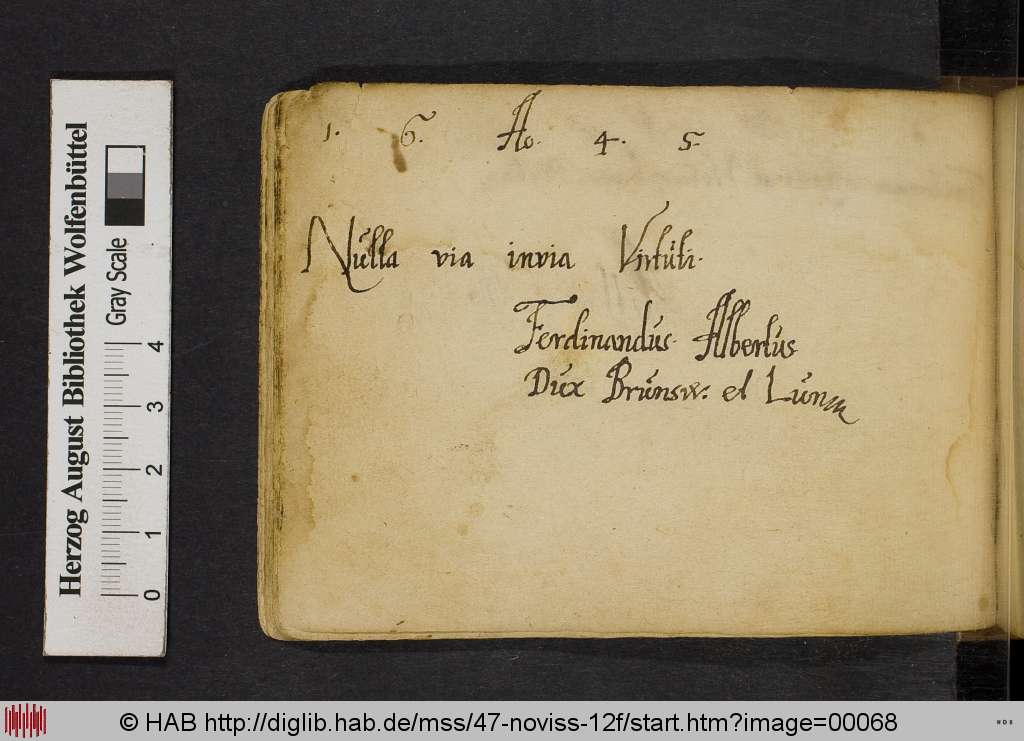 1. 6. Ao. 4. 5.
Nulla via invia Virtuti.
Ferdinandus Albertus
Dux Brunsw. et Lun
Herzog August Bibliothek Wolfenbüttel
Gray Scale
0 1 2 3 4
© HAB http://diglib.hab.de/mss/47-noviss-12f/start.htm?image=00068